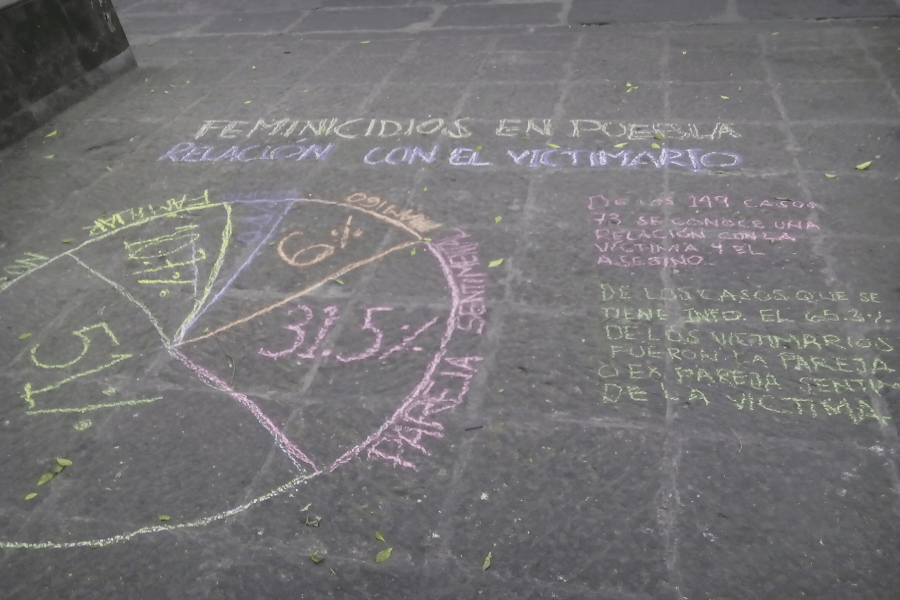 FEMINICIDIOS EN PUEBLA
RELACIÓN CON EL VICTIMARIO
FAMILIAR
AMIGO
6%
SENTIMENTAL
PAREJA
31.5%
51%
DE LOS 149 CASOS
73 SE CONOCE UNA
RELACIÓN CON LA
VÍCTIMA Y EL
ASESINO.
DE LOS CASOS QUE SE
TIENE INFO. EL 65.3%
DE LOS VICTIMARIOS
FUERON LA PAREJA
O EX PAREJA SENTI
DE LA VICTIMA